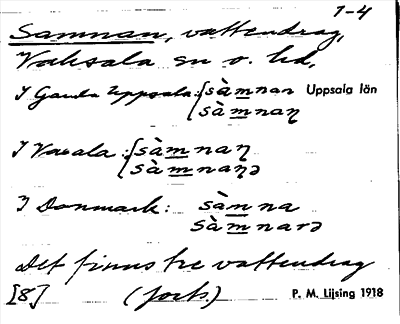 1-4
Samnan, vattendrag,
Vaksala sn o. hd,
I Gamla Uppsala: sàmnan Uppsala län
sàmnaꞃ
I Vaxala: sàmnaꞃ
sàmnaꞃə
I Danmark: sàmna
sàmnarə
Det finns tre vattendrag
[8] (forts.) P. M. Lijsing 1918